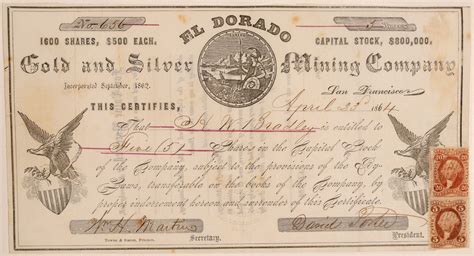 No. 656
5
EL DORADO
1600 SHARES, $500 EACH.
CAPITAL STOCK, $800,000.
Gold and Silver Mining Company
Incorporated September, 1862.
San Francisco
April 22 1864
THIS CERTIFIES,
That H W Bradley is entitled to
Five (5) Shares in the Capital Stock
of the Company, subject to the provisions of the By-
Laws, transferable on the books of the Company, by
proper indorsement hereon and surrender of this Certificate.
W. H. Martin
Secretary.
David Porter
President.
TOWNE & BACON, PRINTERS